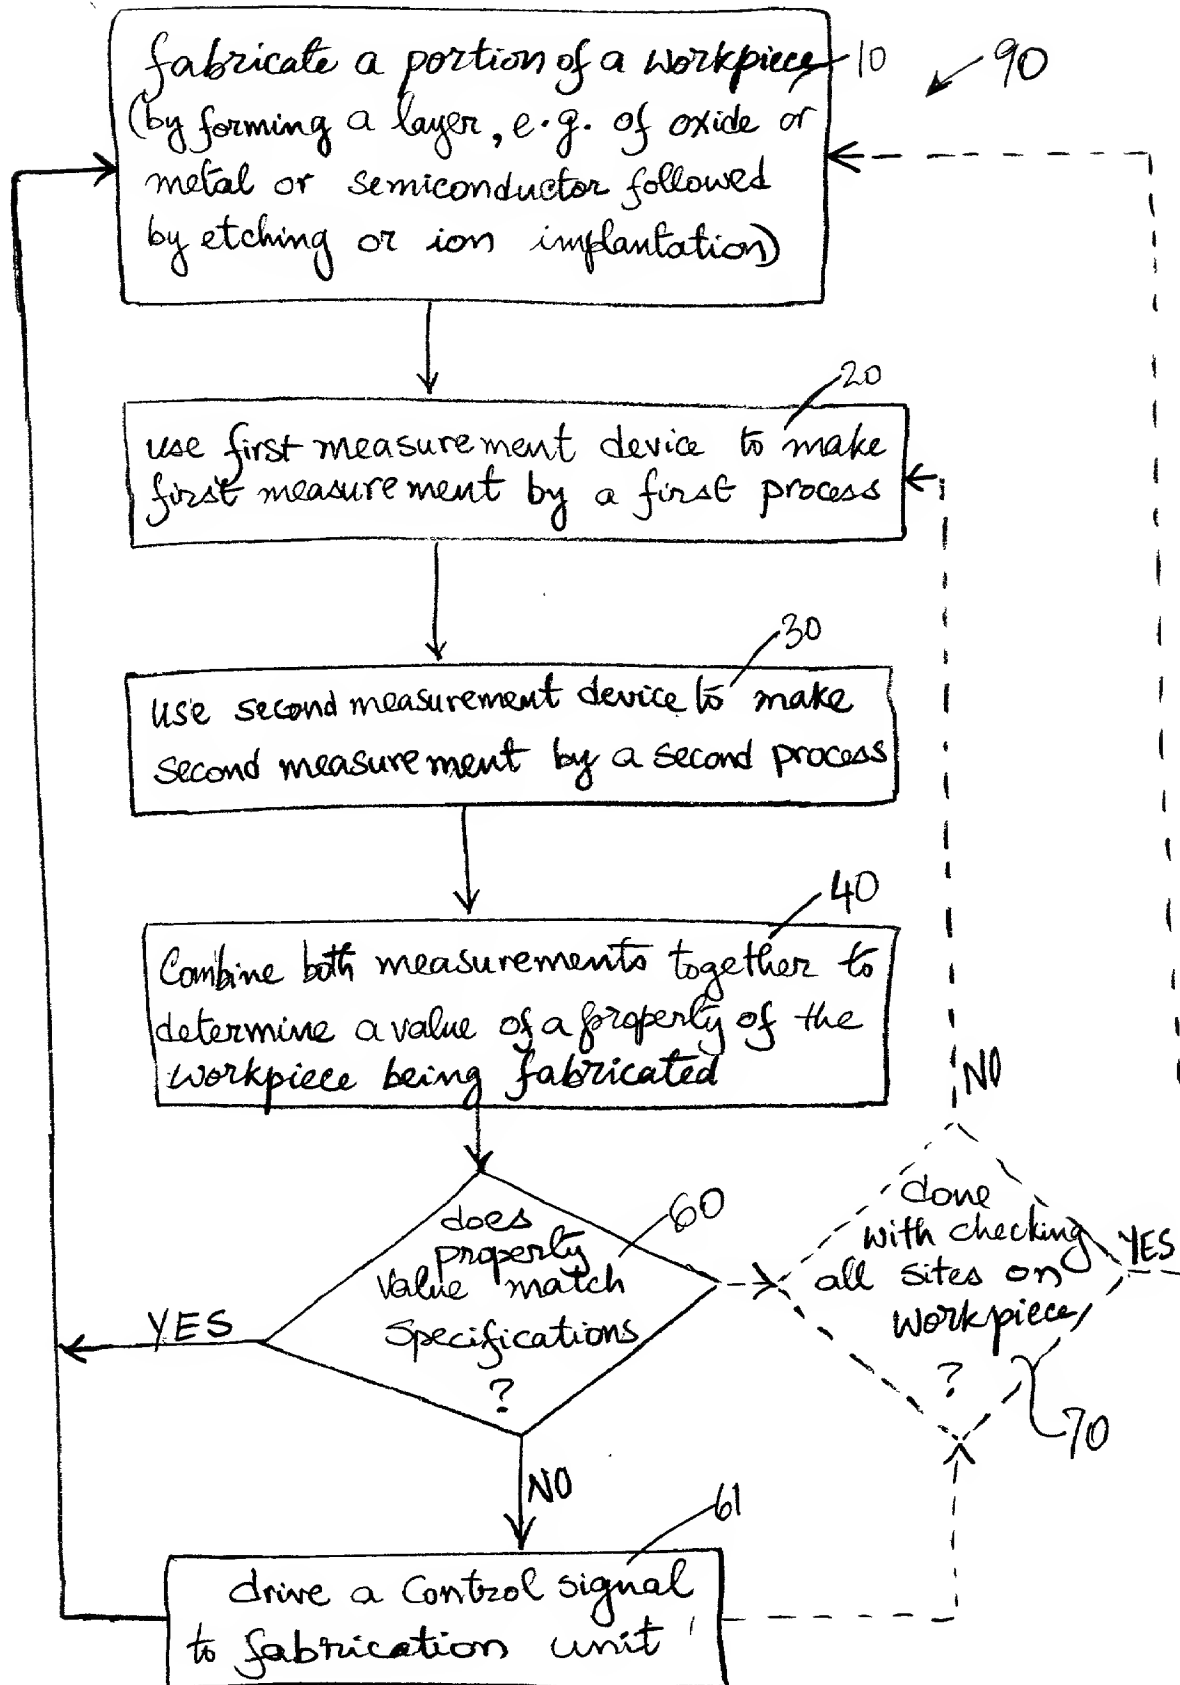 fabricate a portion of a workpiece
10
90
(by forming a layer, e.g. of oxide or
metal or semiconductor followed
by etching or ion implantation)
20
use first measurement device to make
first measurement by a first process
30
use second measurement device to make
second measurement by a second process
40
Combine both measurements together to
determine a value of a property of the
workpiece being fabricated
NO
60
does
property
value match
specifications
?
done
with checking
all sites on
workpiece
?
YES
YES
70
NO
61
drive a control signal
to fabrication unit